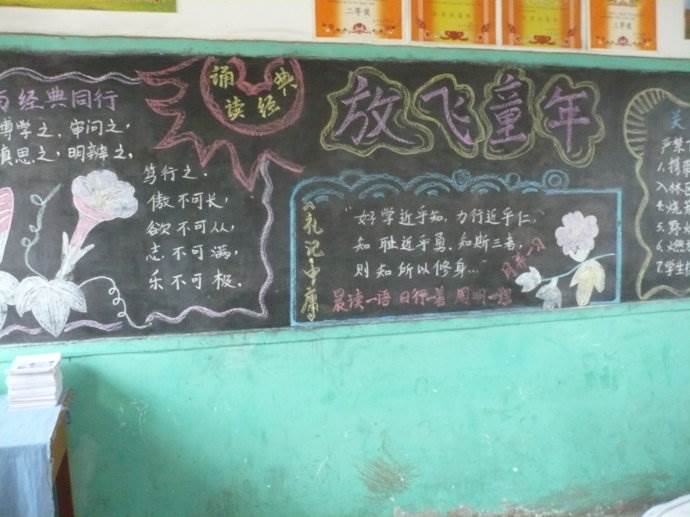 二等奖
与经典同行
博学之、审问之，
慎思之，明辨之，
笃行之。
傲不可长，
欲不可从，
志不可满，
乐不可极.
诵
读经典
放飞童年
《礼记中庸》
"好学近乎知，力行近乎仁，
知耻近乎勇。知斯三者，
则知所以修身…"
晨读一语 日行一善 周明一理
严禁
入林